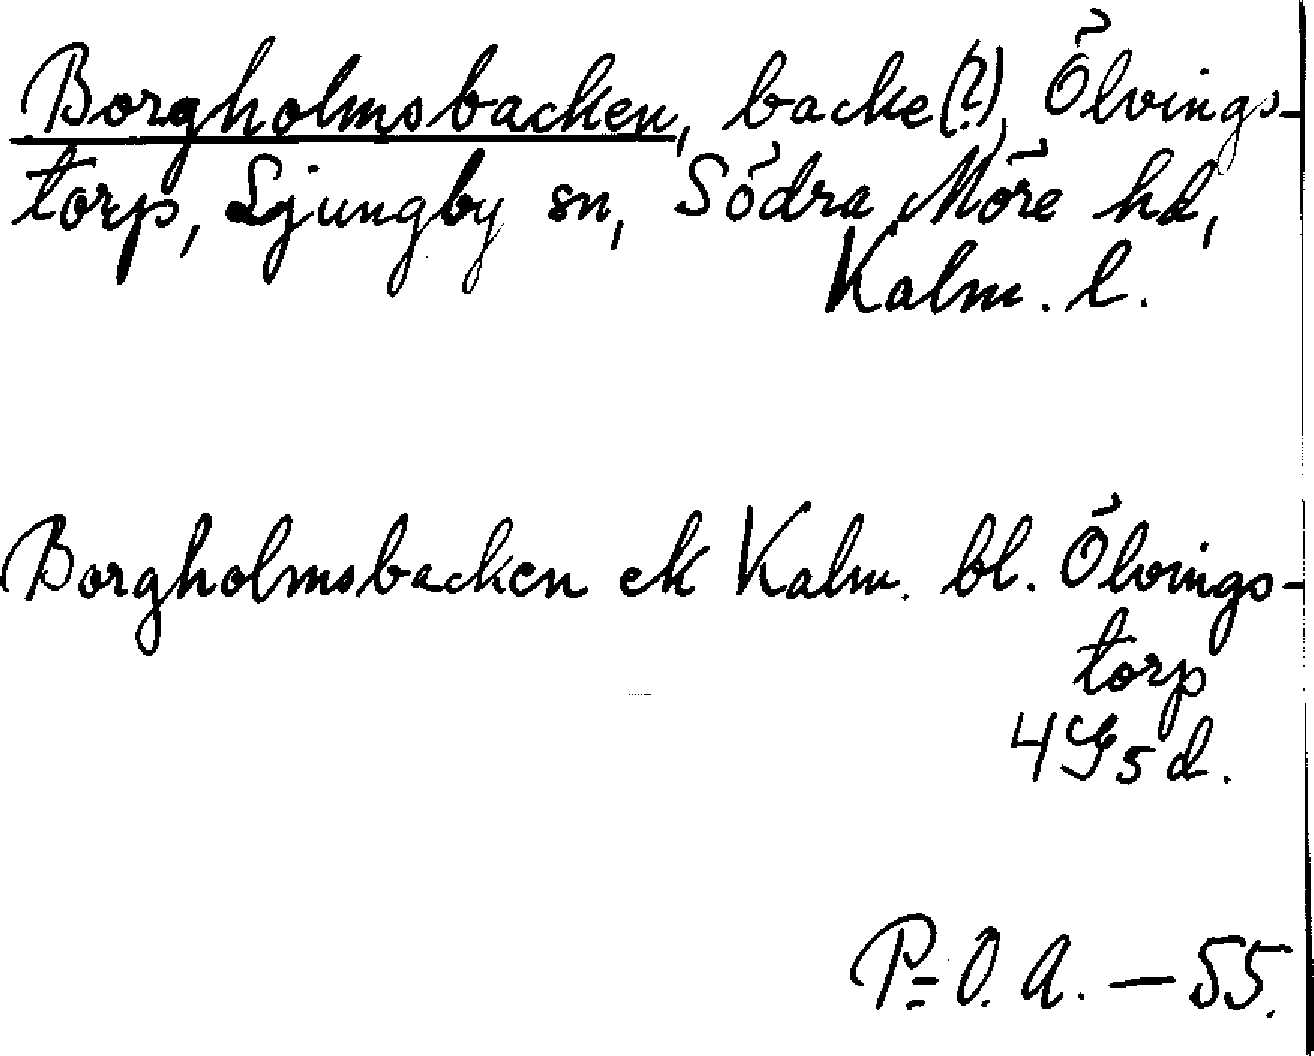 Borgholmsbacken, backe(?), Ölvings-
torp, Ljungby sn, Södra Möre hd,
Kalm. l.
Borgholmsbacken ek Kalm. bl. Ölvings-
torp
4G5d.
P=O.A. — 55.